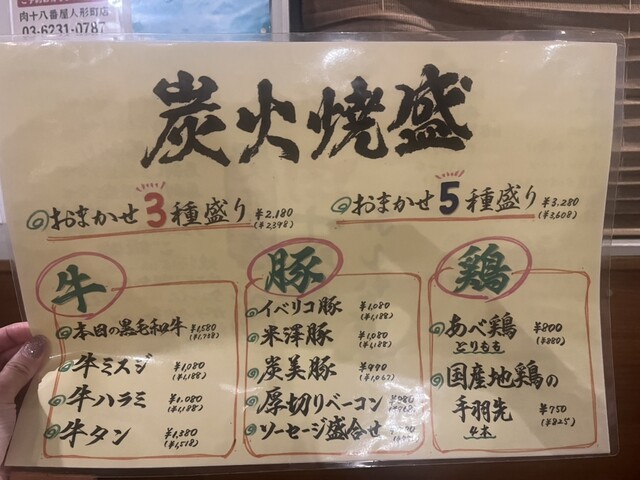 肉十八番屋人形町店
03-6231-0787
炭火焼盛
おまかせ3種盛り ¥2.180
(¥2,398)
おまかせ5種盛り ¥3.280
(¥3,608)
牛
本日の黒毛和牛 ¥1,580
(¥1,738)
牛ミスジ ¥1,080
(¥1,188)
牛ハラミ ¥1,080
(¥1,188)
牛タン ¥1,380
(¥1,518)
豚
イベリコ豚 ¥1,080
(¥1,188)
米澤豚 ¥1,080
(¥1,188)
炭美豚 ¥970
(¥1,067)
厚切りベーコン
ソーセージ盛合せ
鶏
あべ鶏 ¥800
とりもも (¥880)
国産地鶏の
手羽先 ¥750
4本 (¥825)